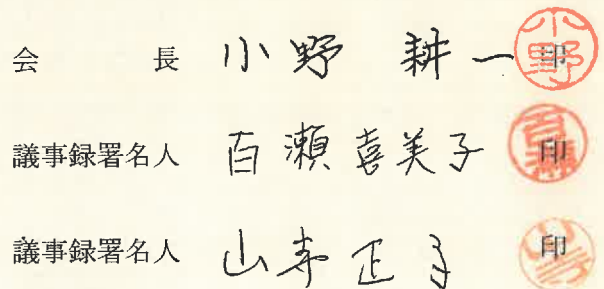 会長 小野 耕一 印
議事録署名人 百瀬喜美子 印
議事録署名人 山寺正